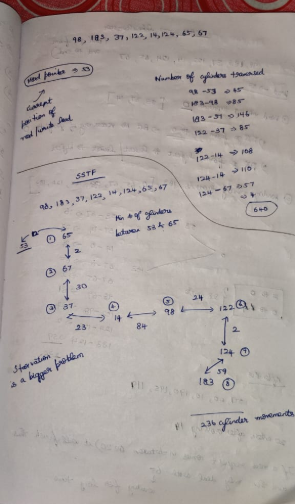 98, 183, 37, 122, 14, 124, 65, 67
Head pointer → 53
Current
position of
read/write head
Number of cylinders traversed
98 - 53 → 45
183 - 98 → 85
183 - 37 → 146
122 - 37 → 85
122 - 14 → 108
124 - 14 → 110
124 - 67 → 57
640
SSTF
98, 183, 37, 122, 14, 124, 65, 67
Min # of cylinders
between 53 & 65
53 12 ① 65
2
② 67
30
③ 37 ④ 14 ⑤ 98 24 122 ⑥
23 84
2
124 ⑦
59
183 ⑧
Starvation
is a bigger problem
236 cylinder movements